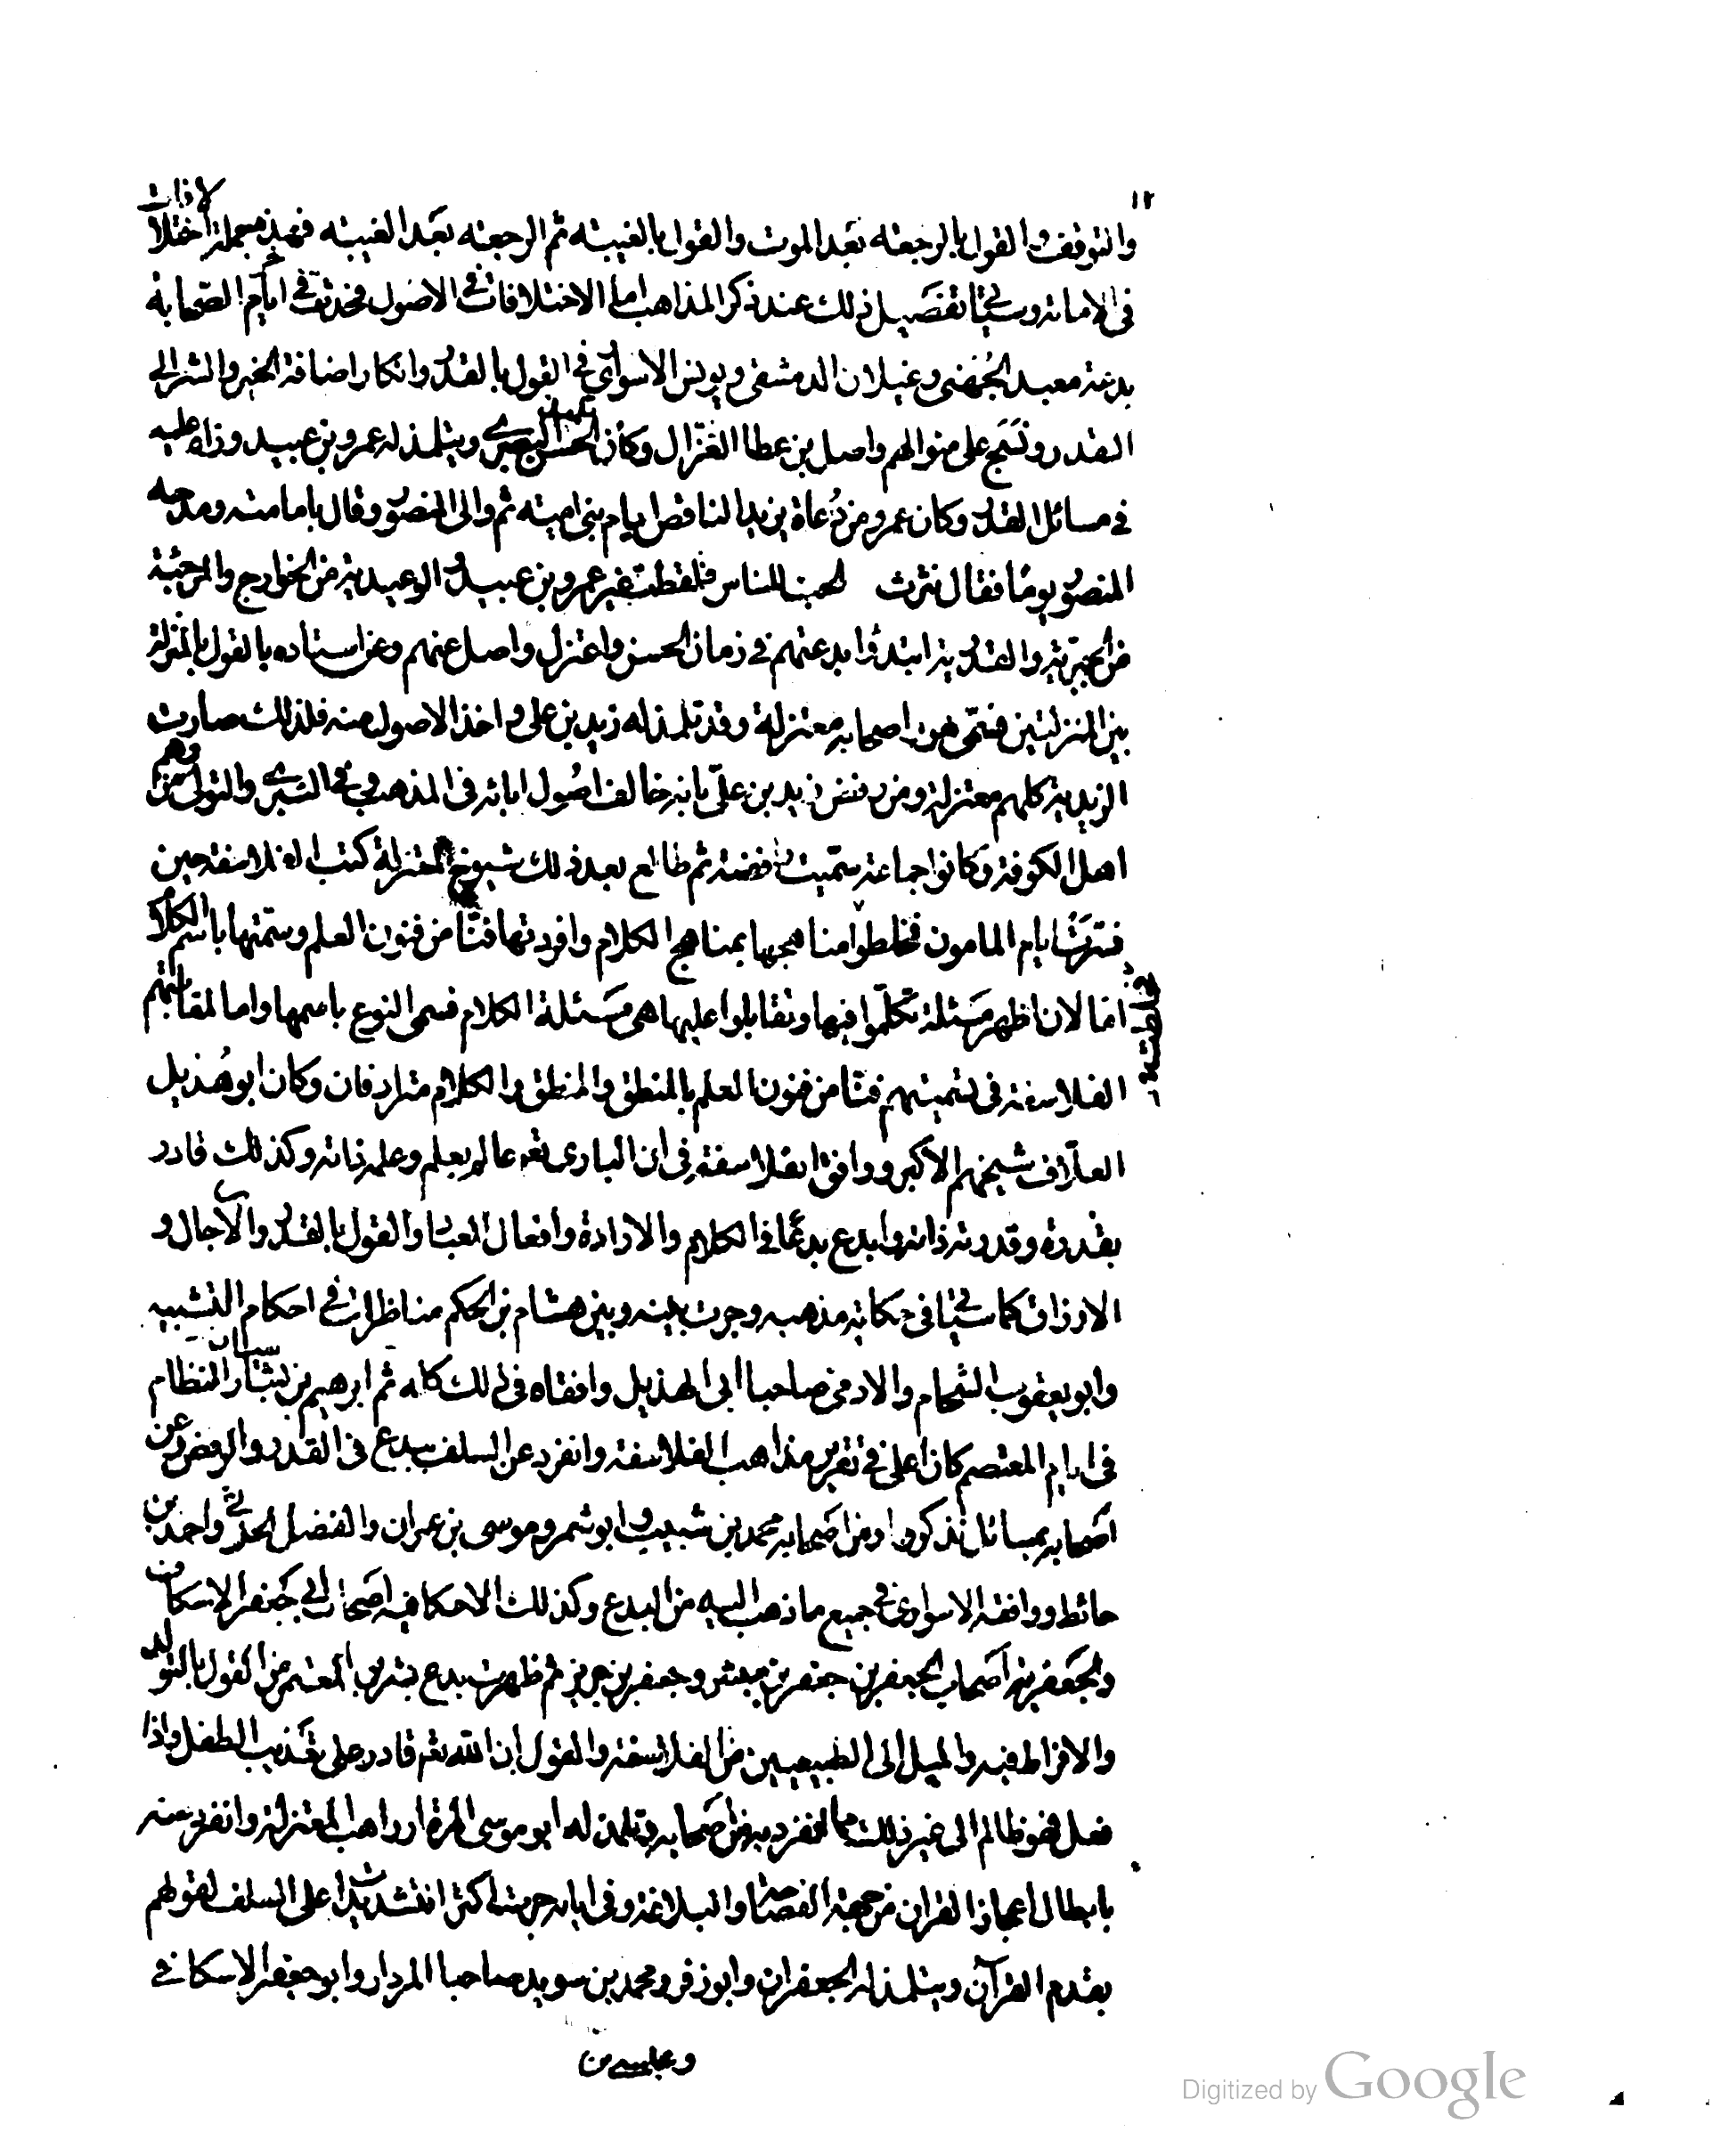 ١٢
والتوقف والقول بالرجعة بعد الموت والقول بالغيبة ثم الرجعة بعد الغيبة فهذه جملة اختلافات
فى الامامة وسيٲتى تفصيل ذلك عند ذكر المذاهب اما الاختلافات فى الاصول فحدثت فى ايام الصحابة
بدعة معبد الجُهَنى وغيلان الدمشقى ويونس الاسوارى فى القول بالقدر وانكار اضافة الخير والشر الى
القدر ونسَج على منوالهم واصل بن عطا الغزّال وكان تلميذ الحسن البصرى وتلمذ له عمرو بن عبيد وزاد عليه
فى مسائل القدر وكان عمرو من دُعاة يزيد الناقص ايام بنى امية ثم والى المنصور وقال بامامته ومدحه
المنصور يومًا فقال نثرت الحب للناس فلقطت غير عمرو بن عبيد والوعيدية من الخوارج والمرجئة
من الجبرية والقدرية ابتدؤا بدعتهم فى زمان الحسن واعتزل واصل عنهم وعن استاده بالقول بالمنزلة
بين المنزلتين فسمّى هو واصحابه معتزلة وقد تلمذ له زيد بن على واخذ الاصول منه فلذلك صارت
الزيدية كلهم معتزلة ومن رفض زيد بن علىّ بانه خالف اصُول ابائه فى المذهب وفى التبرى والتولى وهم من
اهل الكوفة وكانوا جماعة سمّيت رافضة ثم طالع بعد ذلك شيوخ المعتزلة كتب الفلاسفة حين
فسّرت ايام المامون فخلطوا مناهجها بمناهج الكلام وافردتها فنًّا من فنون العلم وسمّتها باسم الكلام
اما لان اظهر مَسئلة تكلّموا فيها وتقابلوا عليها هى مَسئلة الكلام فسمى النوع باسمها واما لمقابلتهم
الفلاسفة فى تسميتهم فنًّا من فنون العلم بالمنطق والمنطق والكلام مترادفان وكان ابو هُذيل
العلّاف شيخهم الاكبر ووافق الفلاسفة فى ان البارى تعه عالم بعلم وعلمه ذاته وكذلك قادر
بقدرة وقدرته ذاته وابدع بدعًا فى الكلام والارادة وافعال العباد والقول بالقدر والآجال و
الارزاق كما سيٲتى فى حكاية مذهبه وجرت بينه وبين هشام بن الحكم مناظرات فى احكام التشبيه
وابو يعقوب الشحام والادمى صاحبا ابى الهذيل وافقاه فى ذلك كله ثم ابرهيم بن سيار النظام
فى ايام المعتصم كان اغلى فى تقرير مذاهب الفلاسفة وانفرد عن السلف ببدع فى القدر والرفض وعن
اصحابه بمسائل نذكرها ومن اصحابه محمد بن شبيب وابو شمر وموسى بن عمران والفضل الحدثى واحمد بن
حائط ووافقه الاسوارى فى جميع ما ذهب اليه من البدع وكذلك الاسكافية اصحاب ابى جعفر الاسكافى
والجعفرية اصحاب الجعفرين جعفر بن مبشر وجعفر بن حرب ثم ظهرت بدع بشر بن المعتمر من القول بالتولد
والافراط فيه والميل الى الطبيعيين من الفلاسفة والقول بان الله تعه قادر على تعذيب الطفل واذا
فعل فهو ظالم الى غير ذلك مما تفرد به من اصحابه وتلمذ له ابو موسى المزدار راهب المعتزلة وانفرد عنه
بابطال اعجاز القران من جهة الفصاحة والبلاغة وفى ايامه جرت اكثر التشديدات على السلف لقولهم
بقدم القرآن وتلمذ له الجعفران وابو زفر ومحمد بن سويد صاحبا المزدار وابو جعفر الاسكافى
وعيسى بن
Digitized by Google